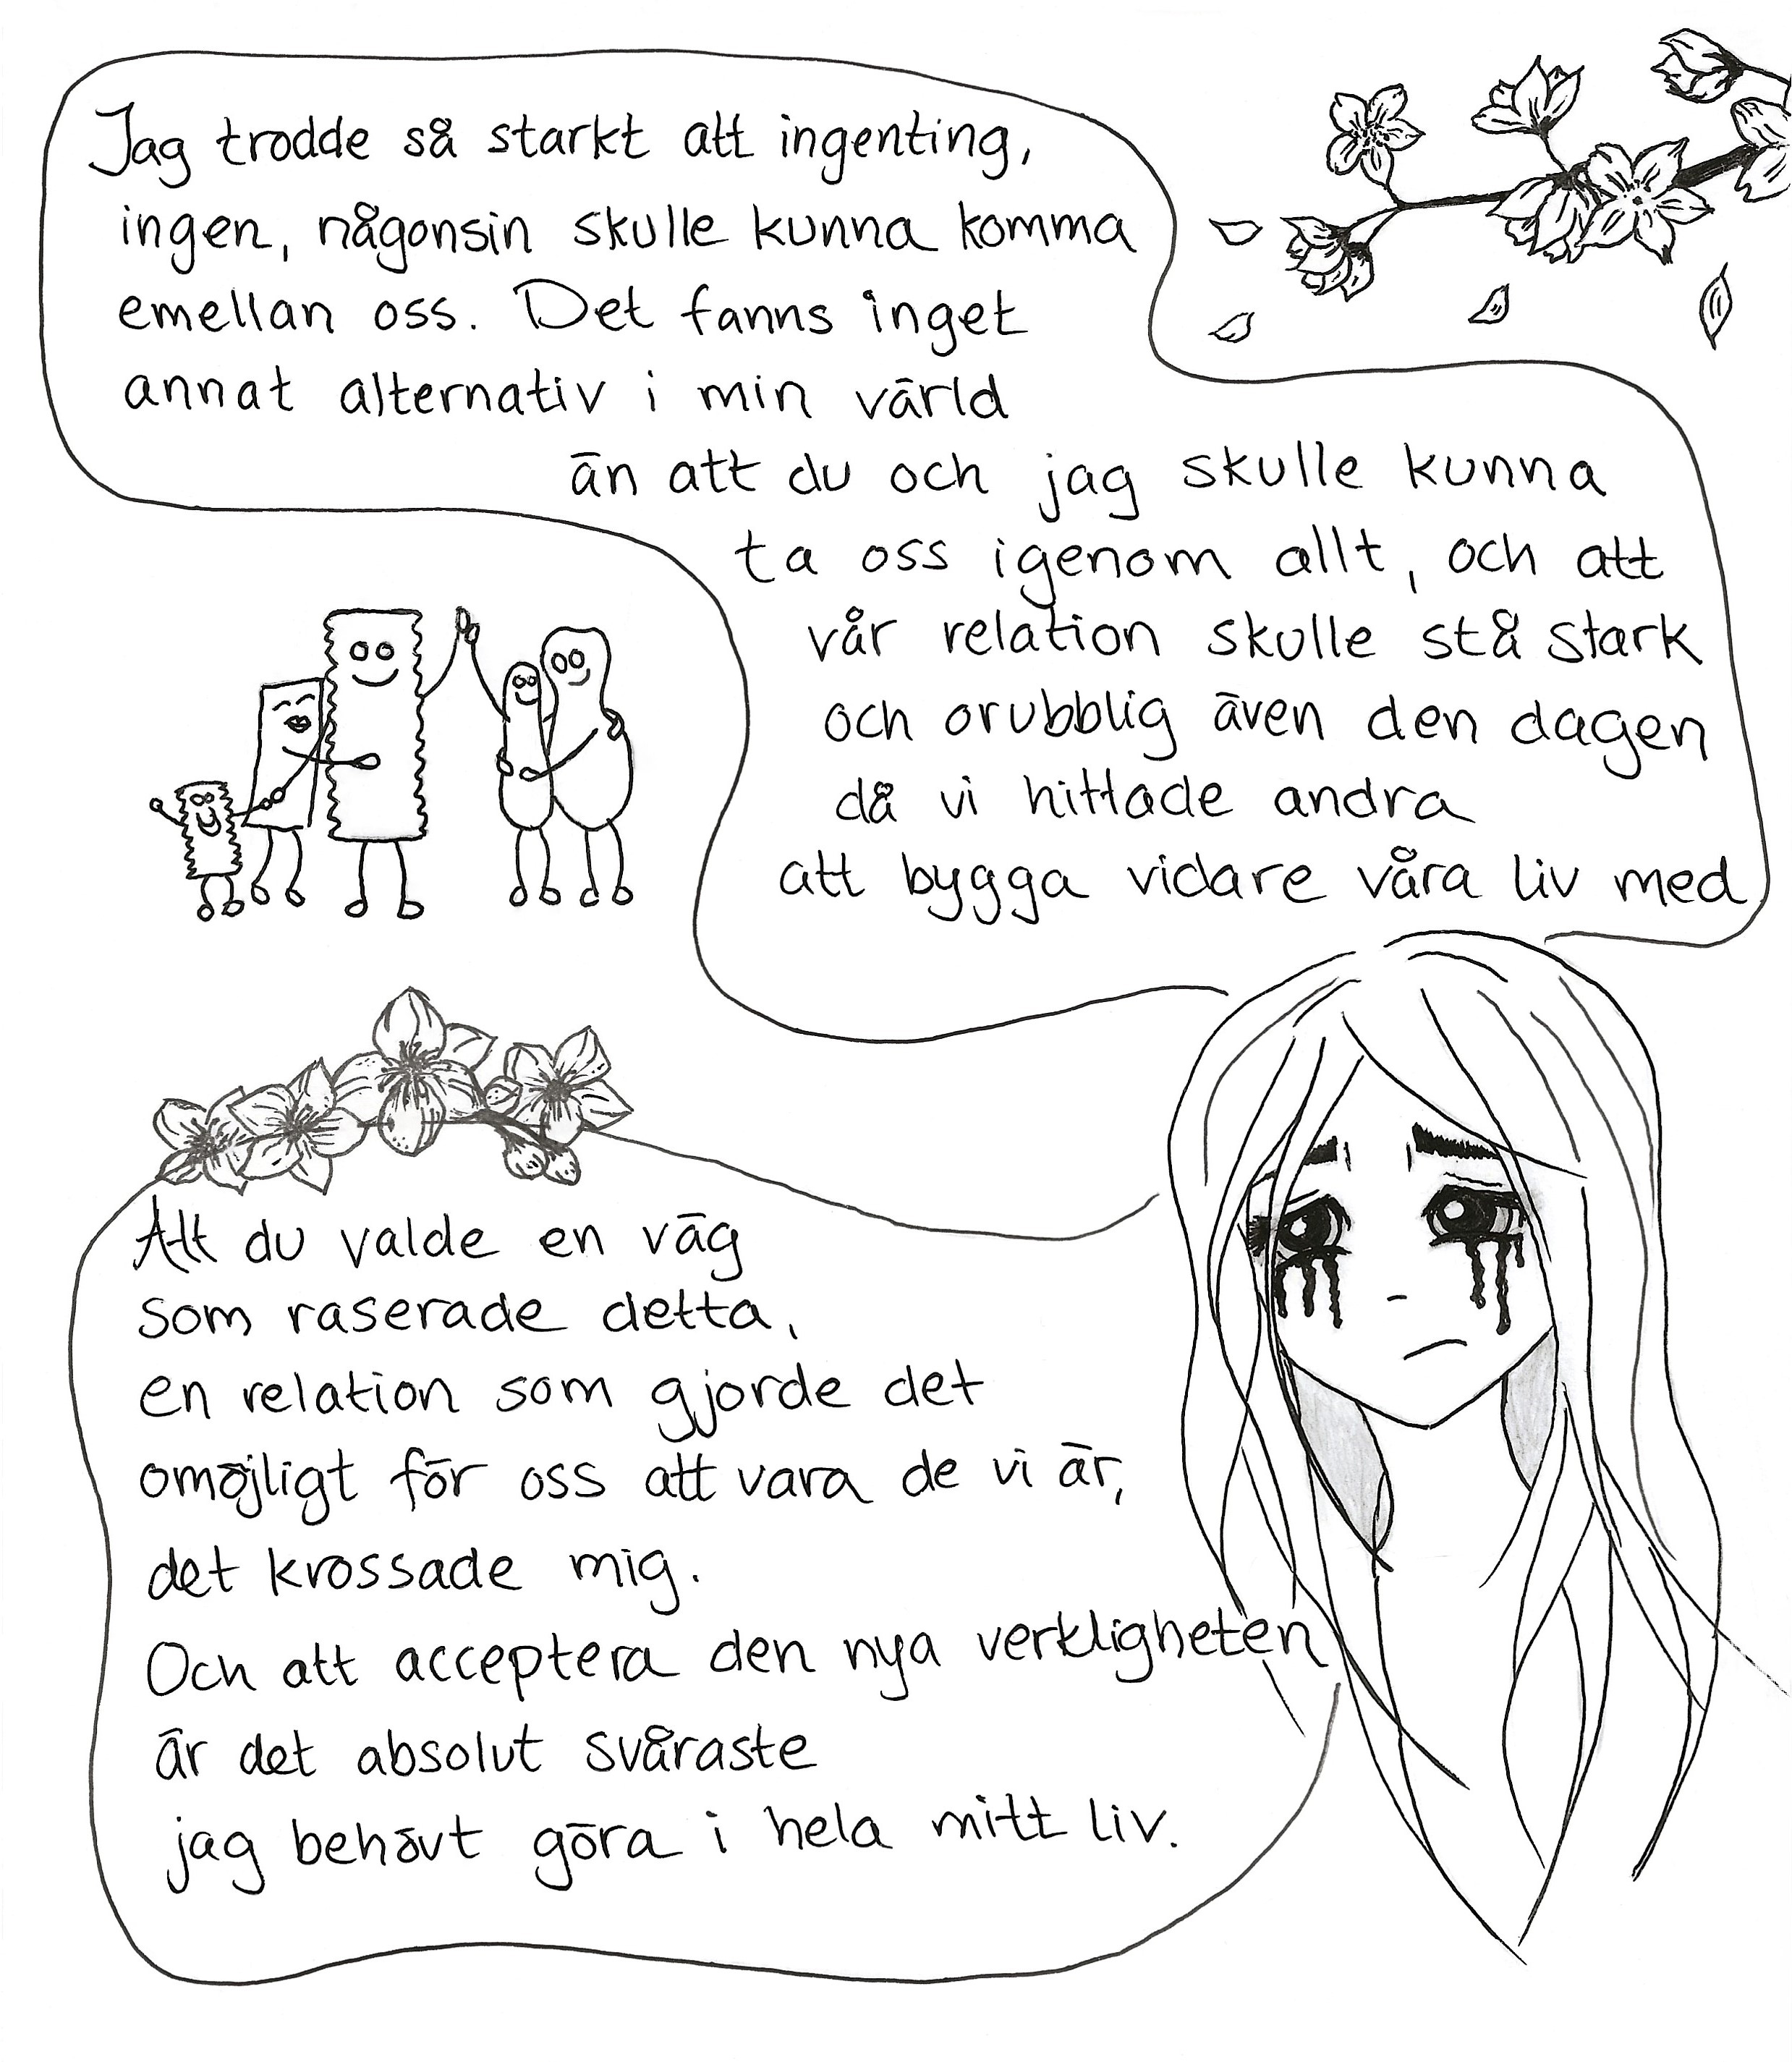 Jag trodde så starkt att ingenting,
ingen, någonsin skulle kunna komma
emellan oss. Det fanns inget
annat alternativ i min värld
än att du och jag skulle kunna
ta oss igenom allt, och att
vår relation skulle stå stark
och orubblig även den dagen
då vi hittade andra
att bygga vidare våra liv med
Att du valde en väg
som raserade detta,
en relation som gjorde det
omöjligt för oss att vara de vi är,
det krossade mig.
Och att acceptera den nya verkligheten
är det absolut svåraste
jag behövt göra i hela mitt liv.